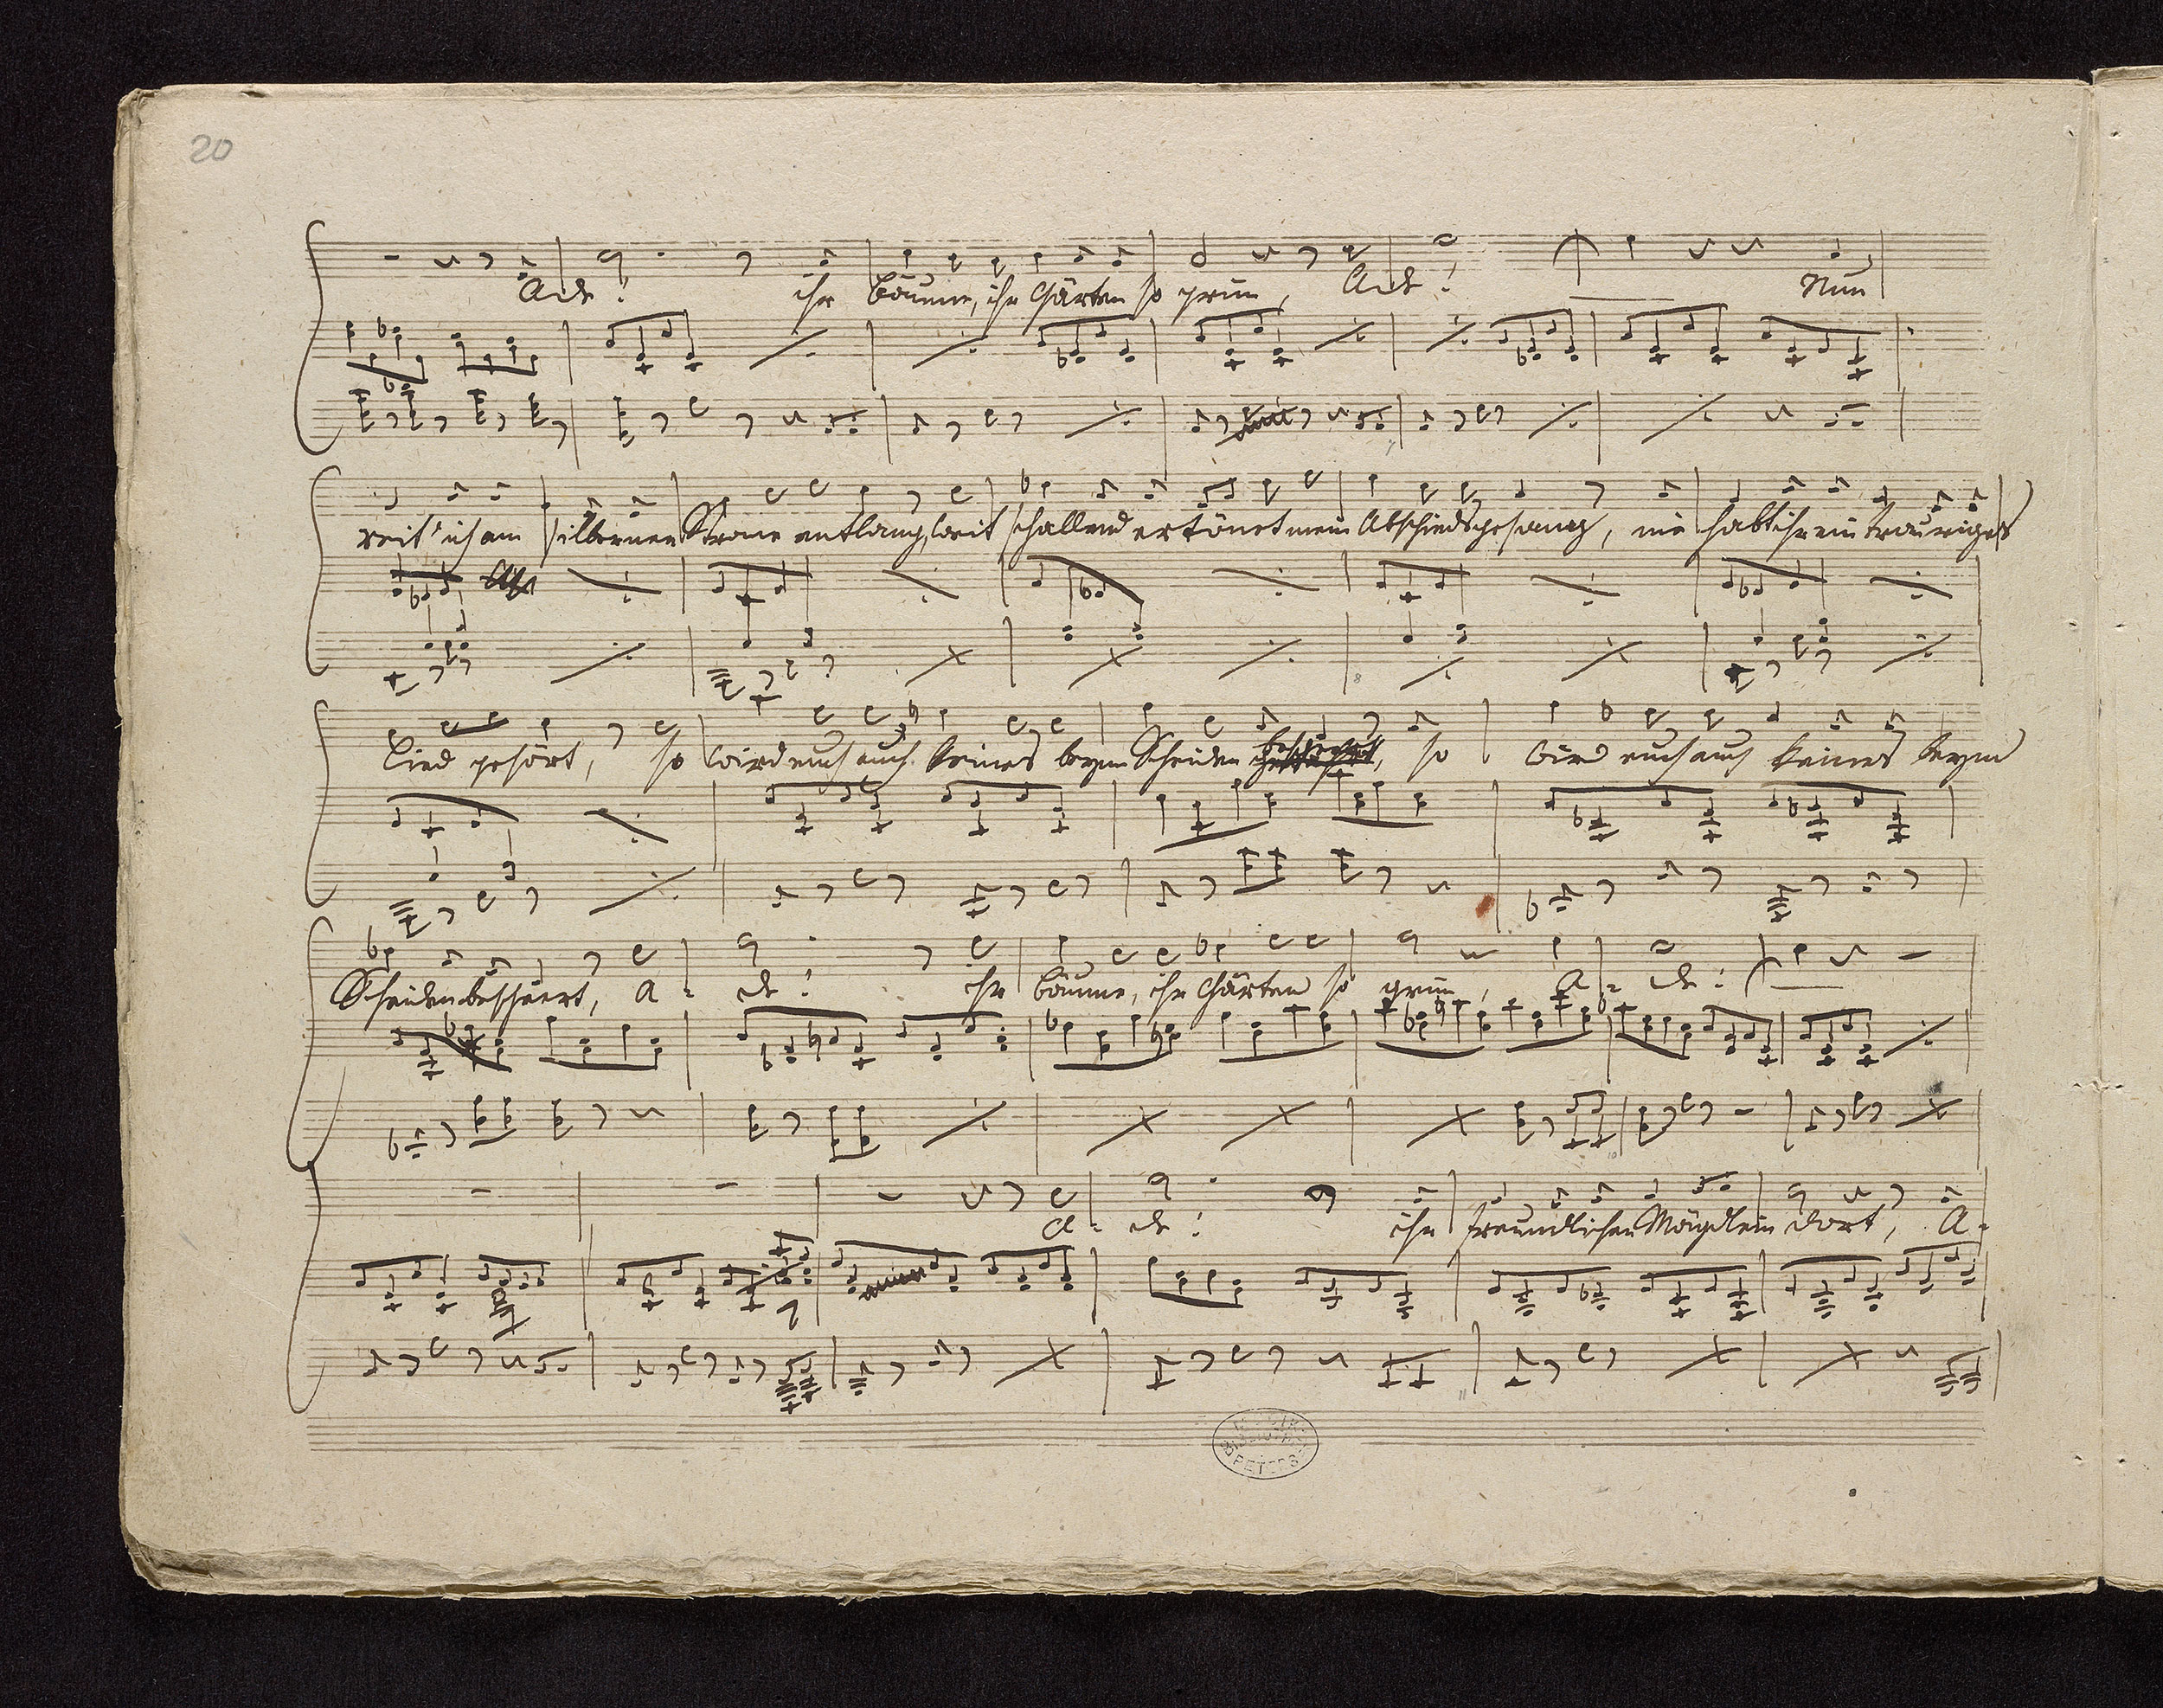 20
Ade! ihr Bäume, ihr Gärten so grün, Ade! Nun
reit' ich am silbernen Strome entlang, weit schallend ertönet mein Abschiedsgesang, nie habt ihr ein trauriges
Lied gehört, so wird euch auch keines beym Scheiden beschert, so wird euch auch keines beym
Scheiden beschert, A- de! ihr Bäume, ihr Gärten so grün, A- de!
A- de! ihr freundlichen Mägdlein dort, A-
MUSIK
BIBLIOTHEK
PETERS